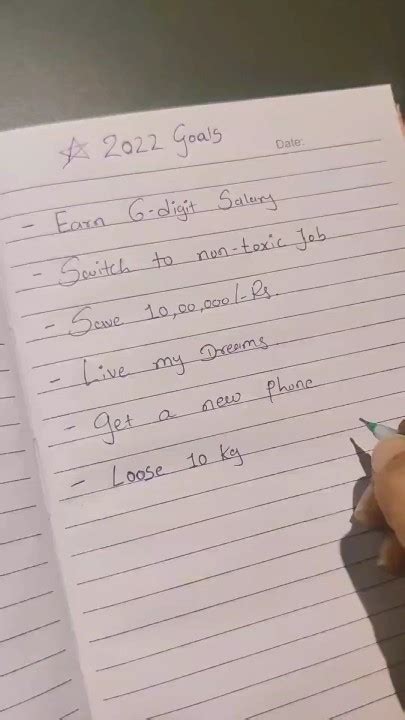 ☆ 2022 Goals
Date:
- Earn 6-digit Salary
- Switch to non-toxic Job
- Save 10,00,000/- Rs.
- Live my Dreams
- Get a new phone
- Loose 10 kg